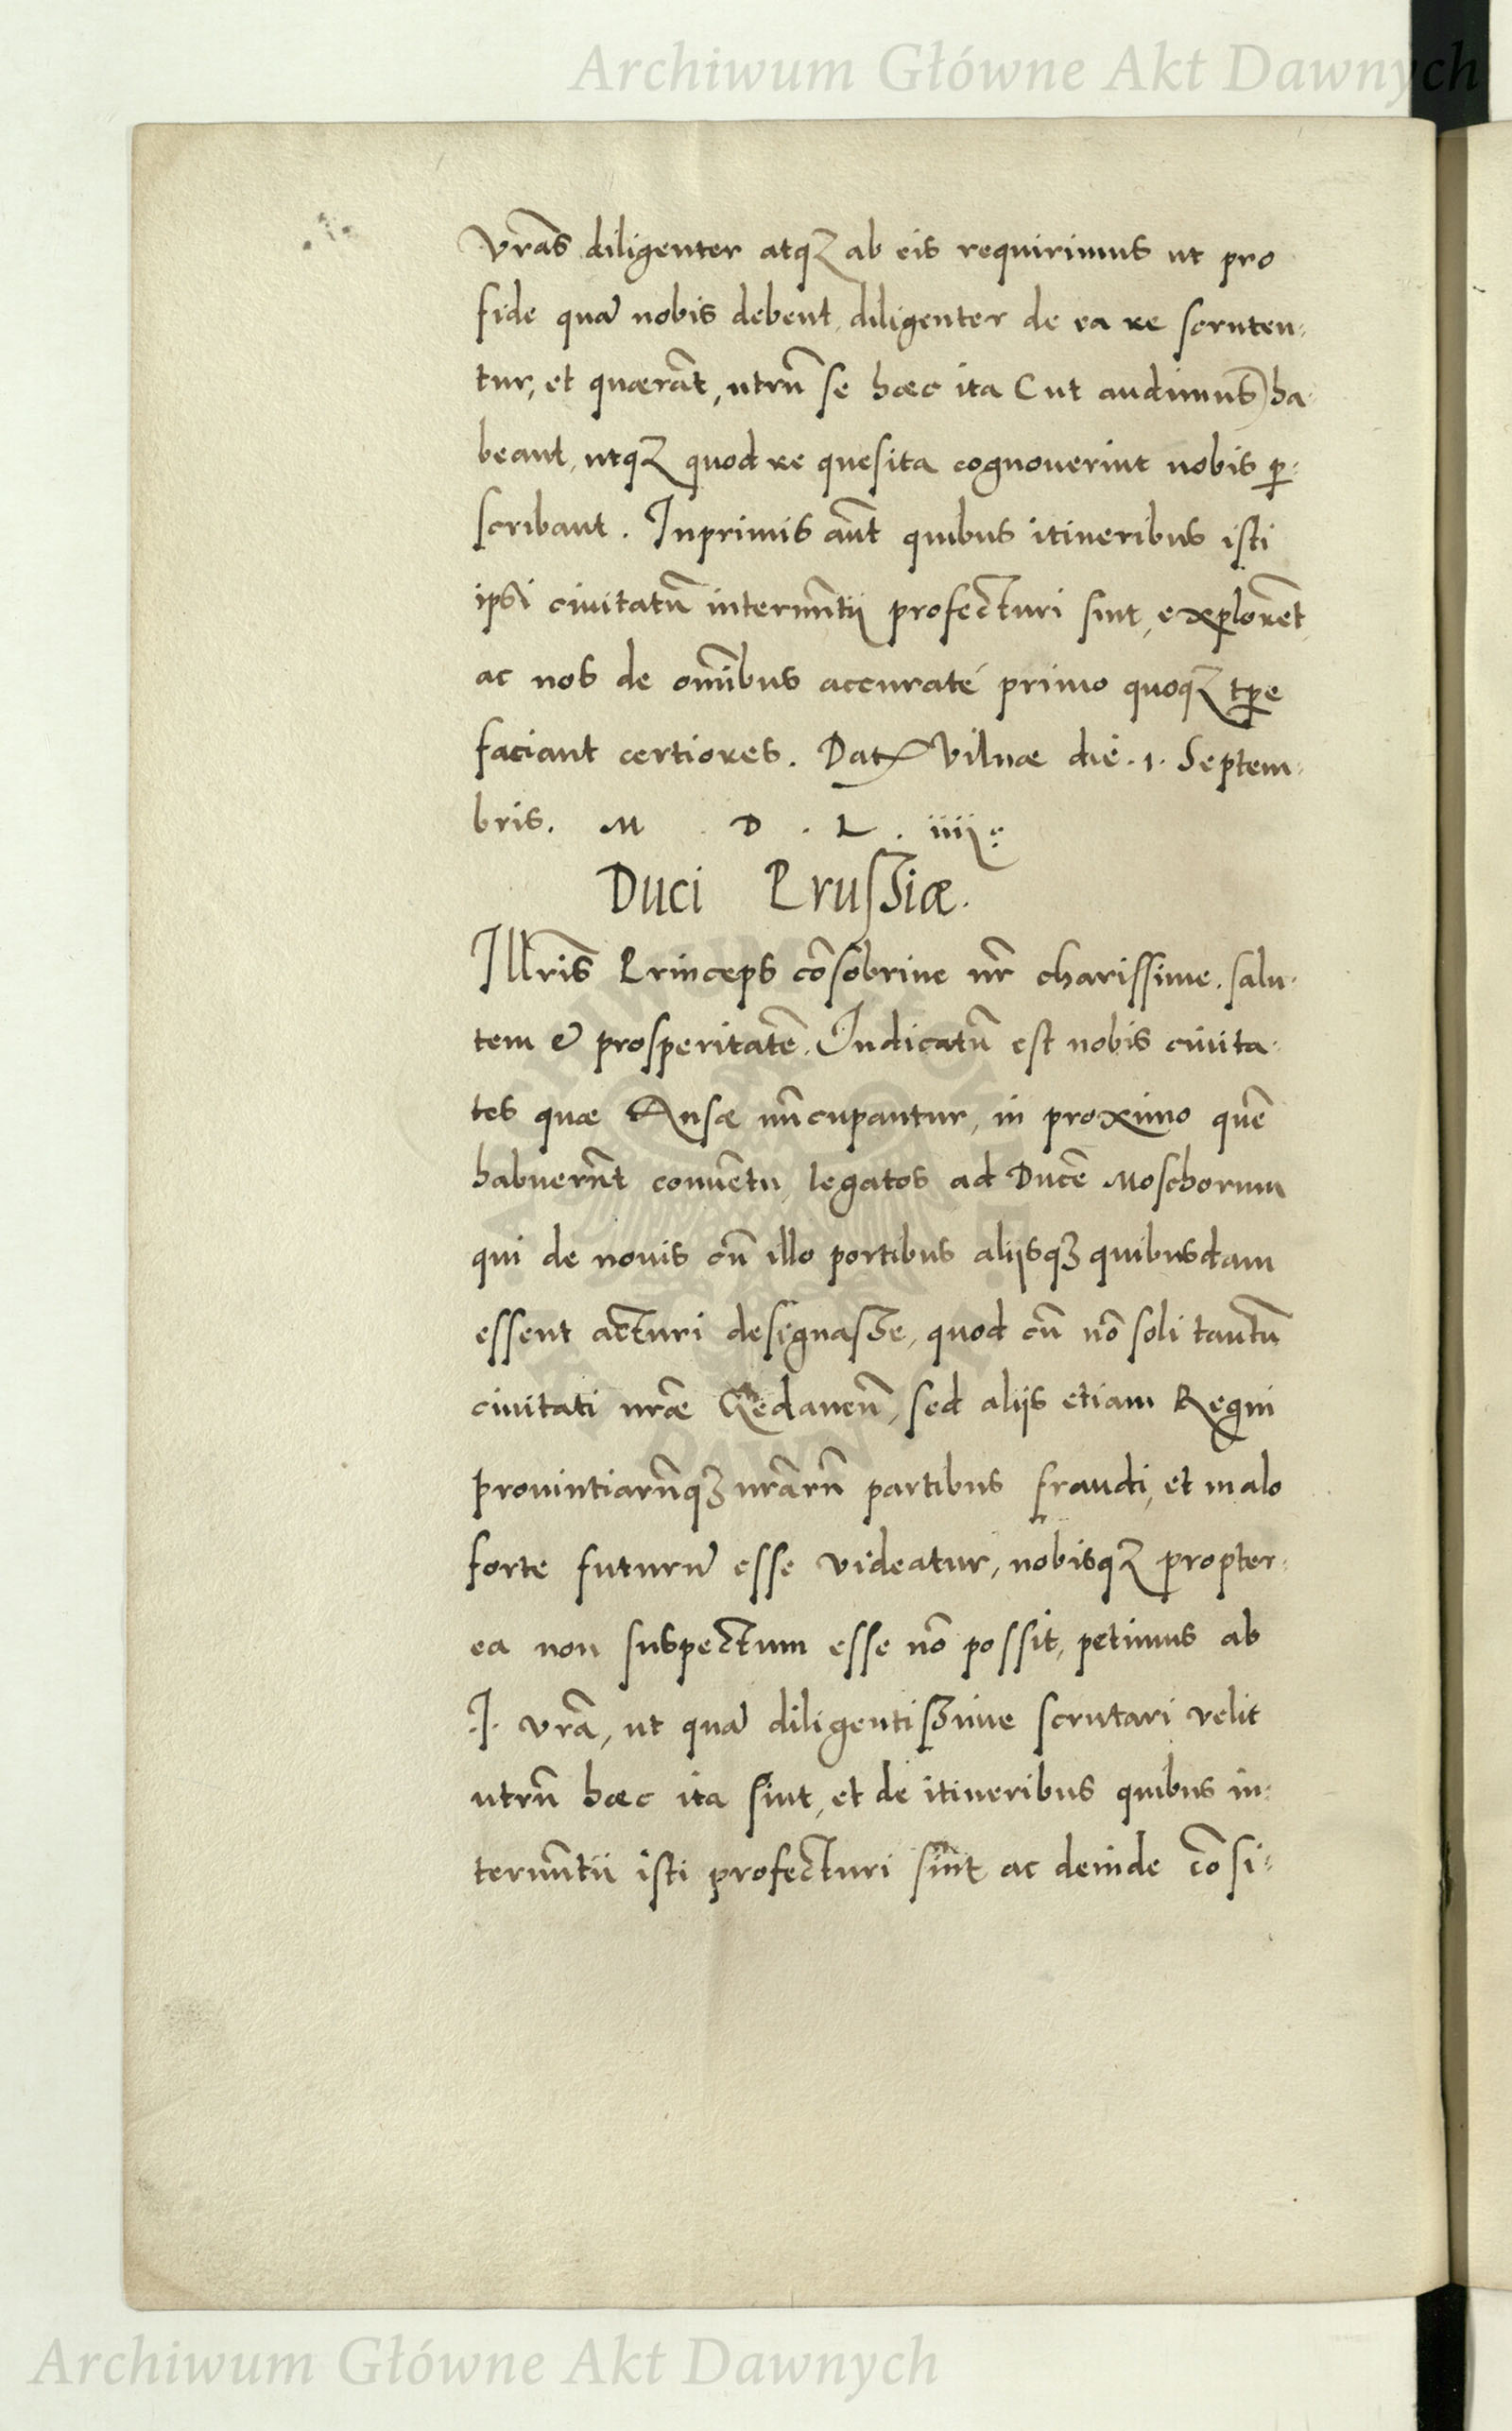 Archiwum Główne Akt Dawnych
Vrãs diligenter atqȝ ab eis requirimus ut pro
fide quã nobis debent, diligenter de ea re scruten-
tur, et quærãt, utrũ se hæc ita (ut audimus) ha-
beant, utqȝ quod re quesita cognouerint nobis ꝑ-
scribant. Inprimis aũt quibus itineribus isti
ipsi ciuitatũ internũtij profecturi sint, explorẽt,
ac nos de oĩnibus accuraté primo quoqȝ tꝑe
faciant certiores. Dat Vilnæ die .1. Septem-
bris. M . D . L . iiij.
Duci Prussiæ.
Illris Princeps cõsobrine nr̃ charissime. salu-
tem & prosperitatẽ. Indicatũ est nobis ciuita-
tes quæ Ansæ nũcupantur, in proximo quẽ
habuerũt conuẽtu, legatos ad Ducẽ Moschorum
qui de nouis cũ illo portibus alijsqȝ quibusdam
essent acturi designasse, quod cũ nõ soli tantũ
ciuitati nr̃æ Gedaneñ, sed alijs etiam Regni
prouintiarũqȝ nr̃arũ partibus fraudi, et malo
forte futurũ esse videatur, nobisqȝ propter-
ea non suspectum esse nõ possit, petimus ab
I. vrã, ut quã diligentissime scrutari velit
utrũ hæc ita sint, et de itineribus quibus in-
ternũtii isti profecturi sint ac deinde cõsi-
Archiwum Główne Akt Dawnych